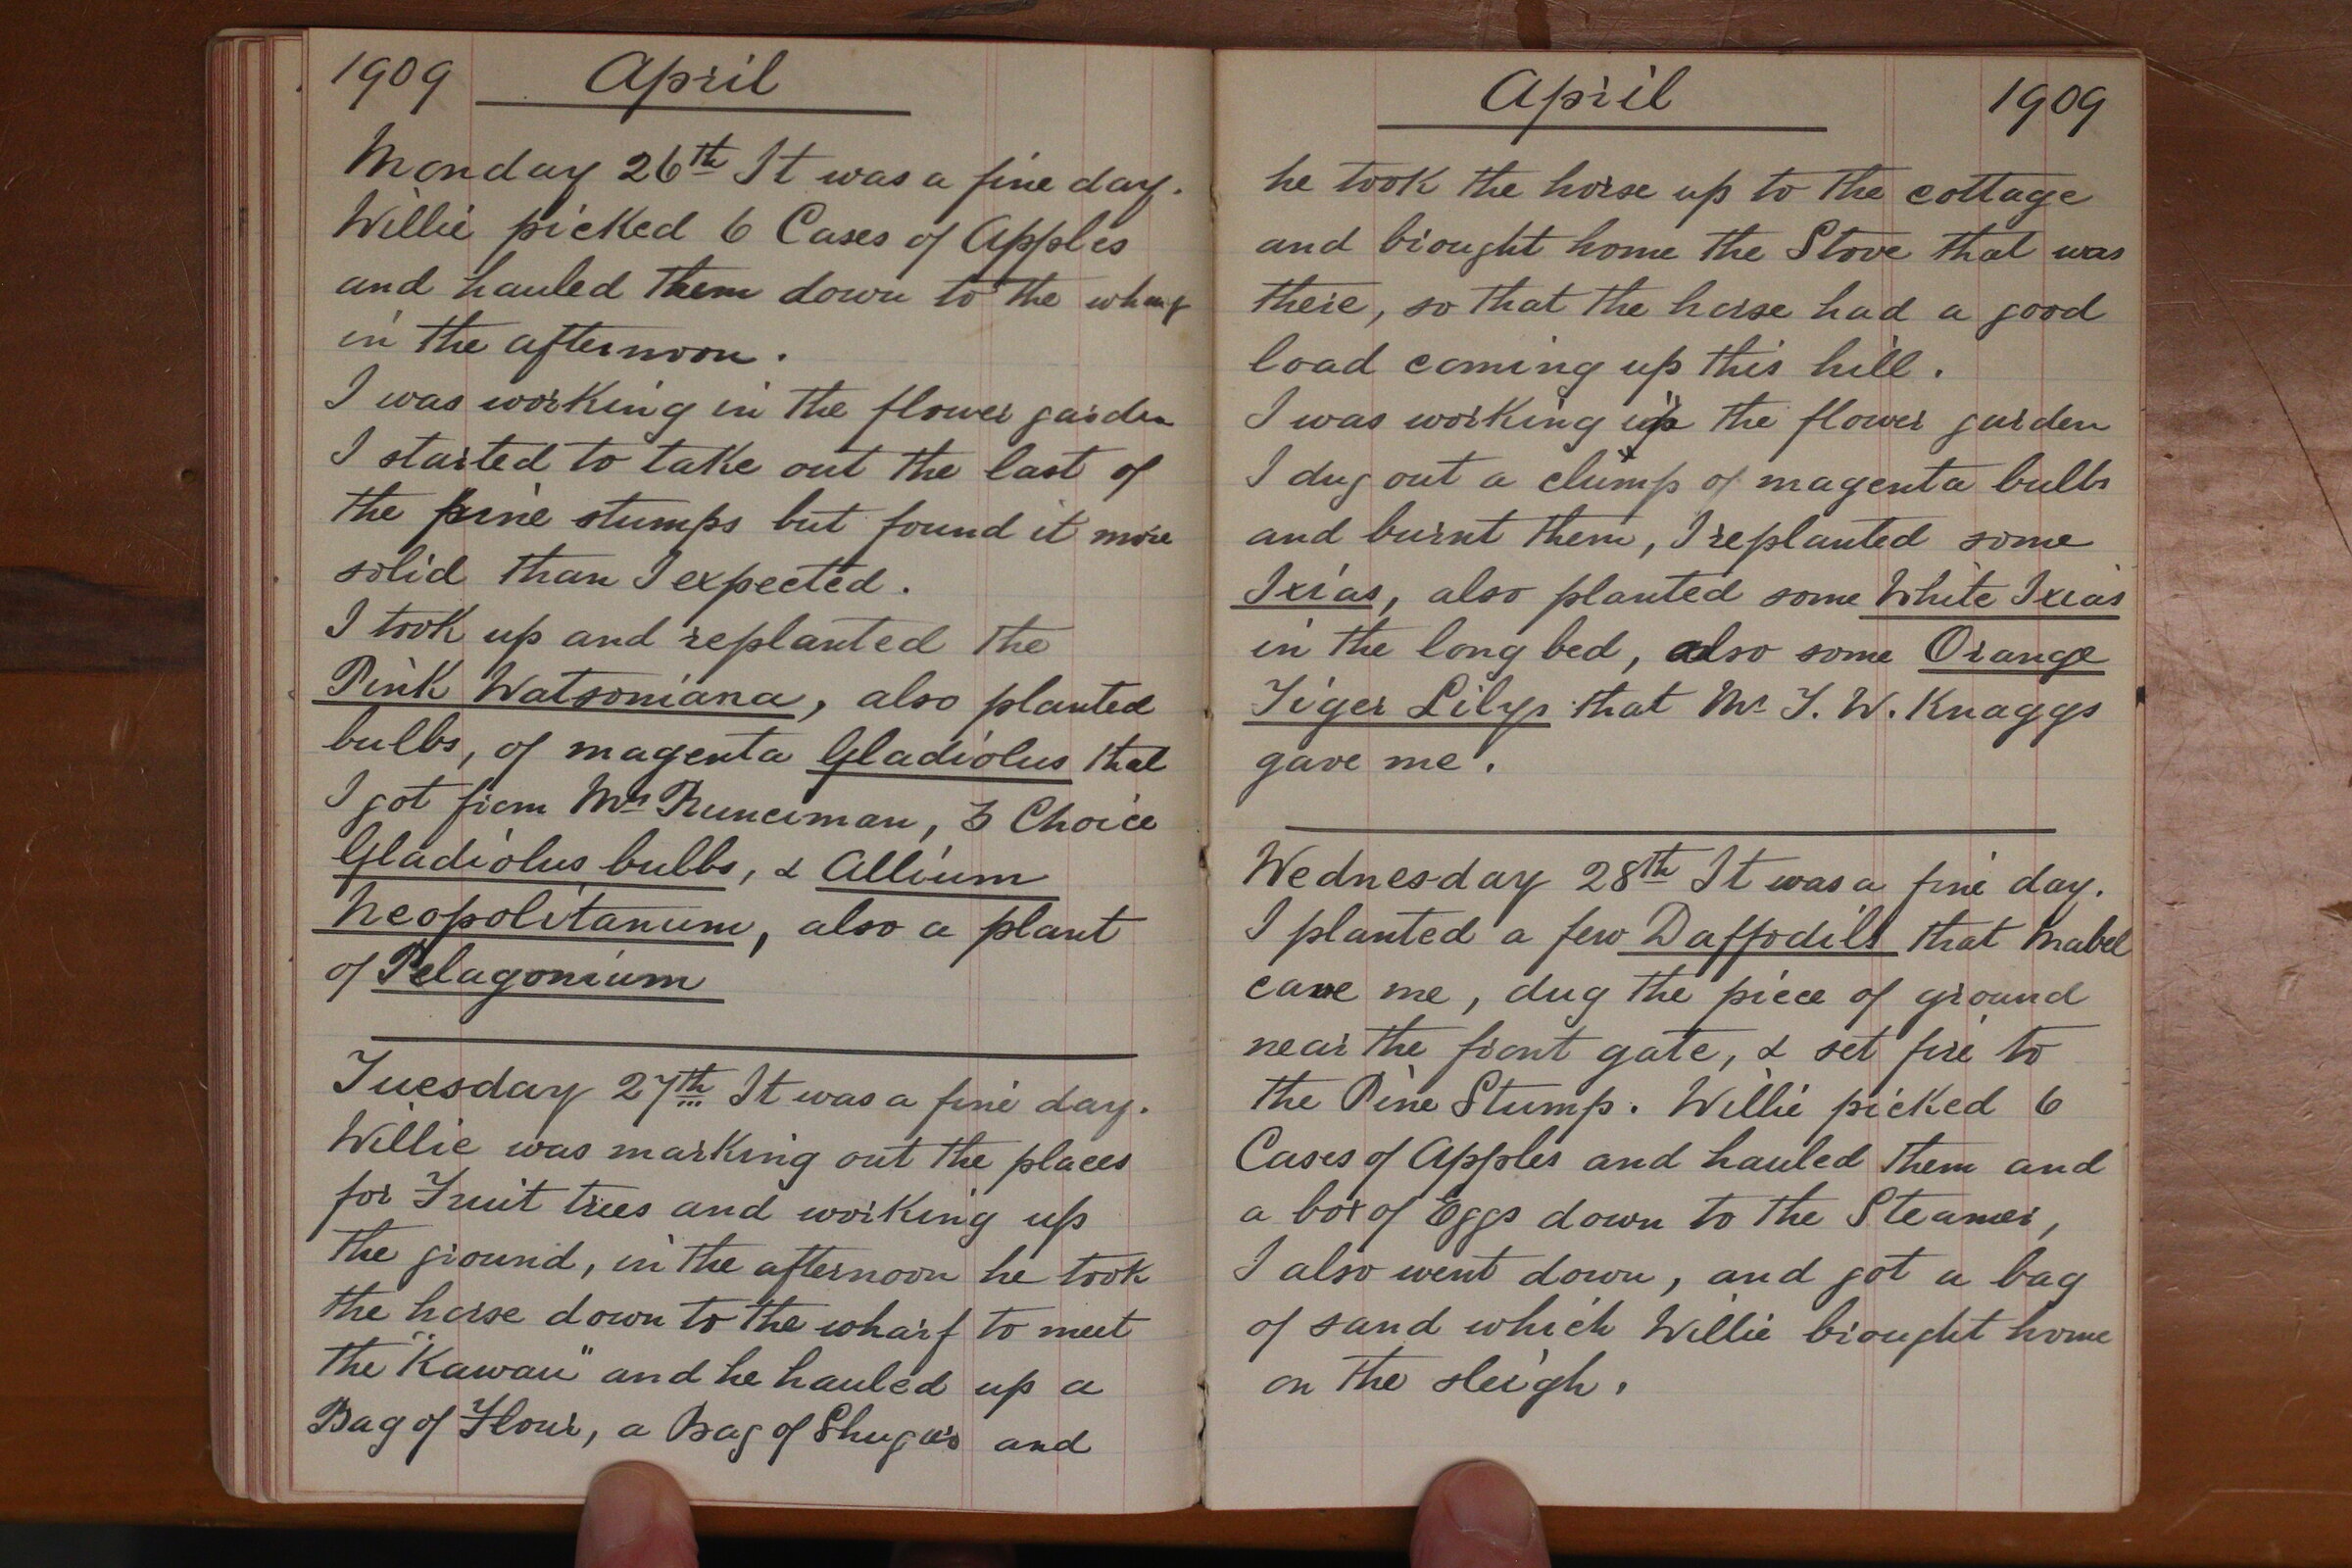 1909 April
Monday 26th It was a fine day.
Willie picked 6 Cases of Apples
and hauled them down to the wharf
in the afternoon.
I was working in the flower garden
I started to take out the last of
the pine stumps but found it more
solid than I expected.
I took up and replanted the
Pink Watsoniana, also planted
bulbs, of magenta Gladiolus that
I got from Mrs Runciman, 3 Choice
Gladiolus bulbs, & Allium
Neopolitanum, also a plant
of Pelagonium
Tuesday 27th It was a fine day.
Willie was marking out the places
for Fruit trees and working up
the ground, in the afternoon he took
the horse down to the wharf to meet
the "Kawau" and he hauled up a
Bag of Flour, a Bag of Shugar and
April 1909
he took the horse up to the cottage
and brought home the Stove that was
there, so that the horse had a good
load coming up this hill.
I was working in the flower garden
I dug out a clump of magenta bulbs
and burnt them, I replanted some
Ixias, also planted some White Ixias
in the long bed, also some Orange
Tiger Lilys that Mr T. W. Knaggs
gave me.
Wednesday 28th It was a fine day.
I planted a few Daffodils that Mabel
cave me, dug the piece of ground
near the front gate, & set fire to
the Pine Stump. Willie picked 6
Cases of Apples and hauled them and
a box of Eggs down to the Steamer,
I also went down, and got a bag
of sand which Willie brought home
on the sleigh.